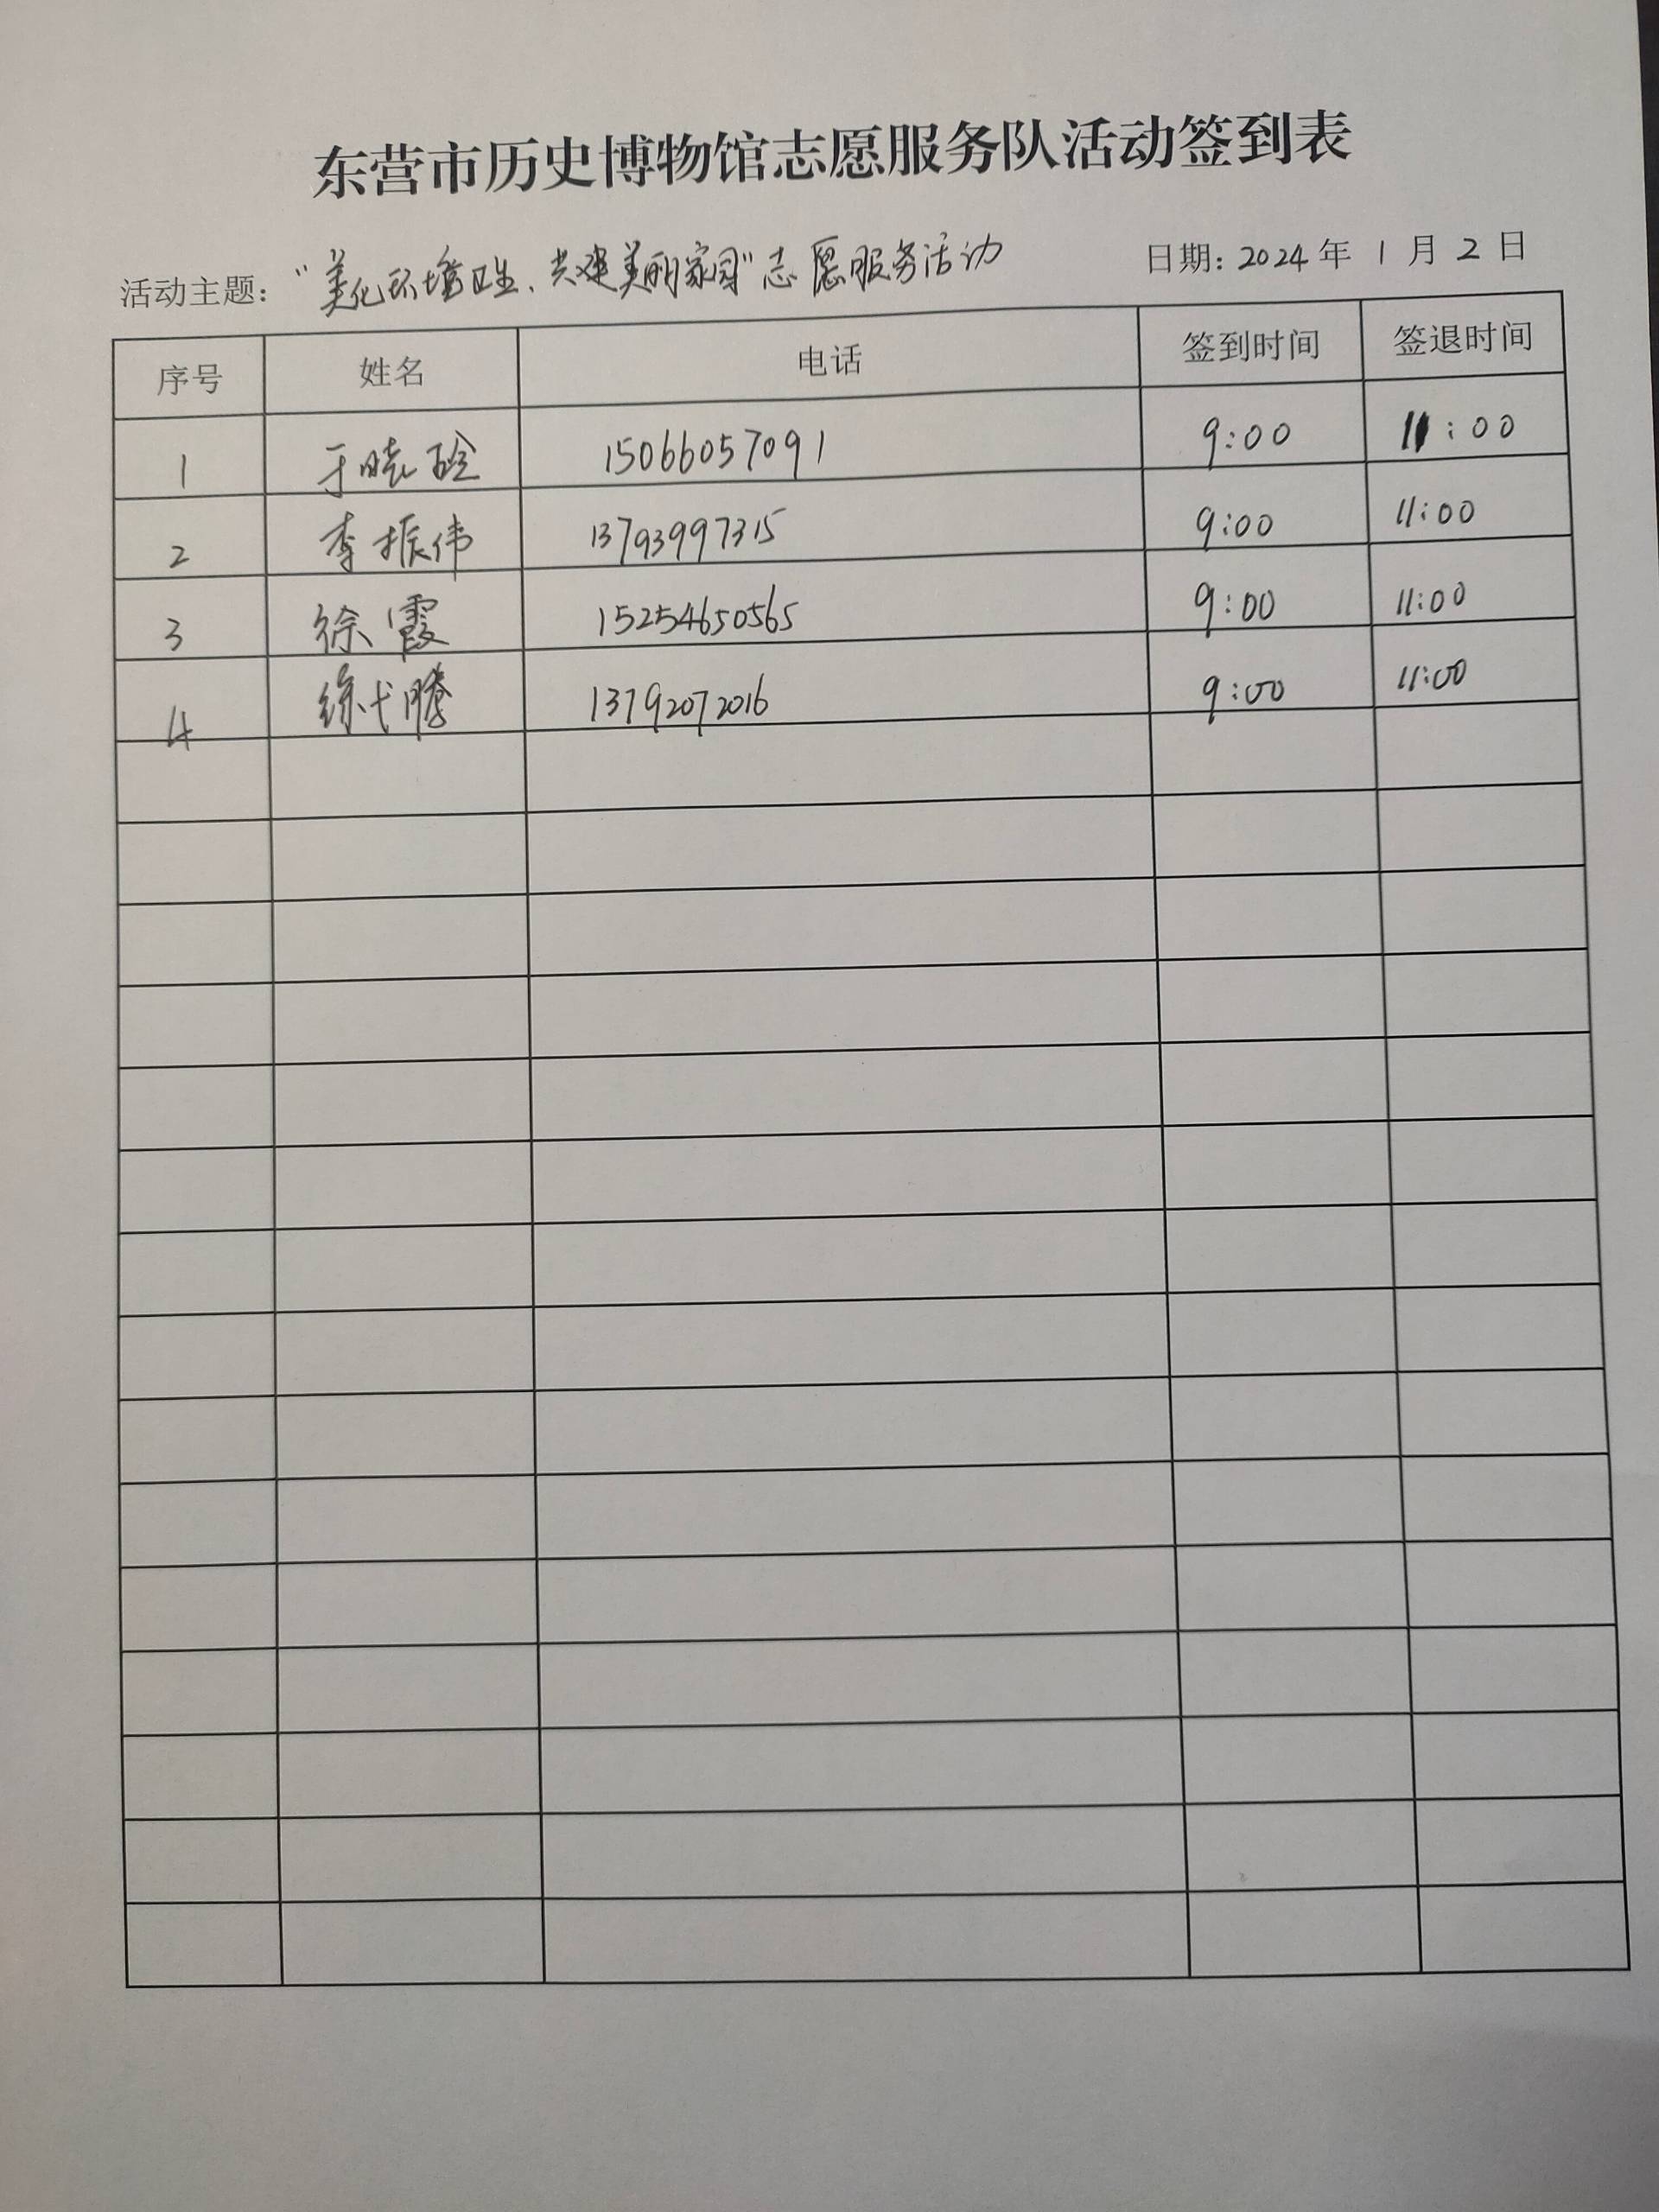 东营市历史博物馆志愿服务队活动签到表
活动主题："美化环境卫生、共建美丽家园"志愿服务活动 日期：2024年1月2日
序号 姓名 电话 签到时间 签退时间
1 于晓 15066057091 9:00 11:00
2 李振伟 13793997315 9:00 11:00
3 徐霞 15254650565 9:00 11:00
4 徐代腾 13792072016 9:00 11:00